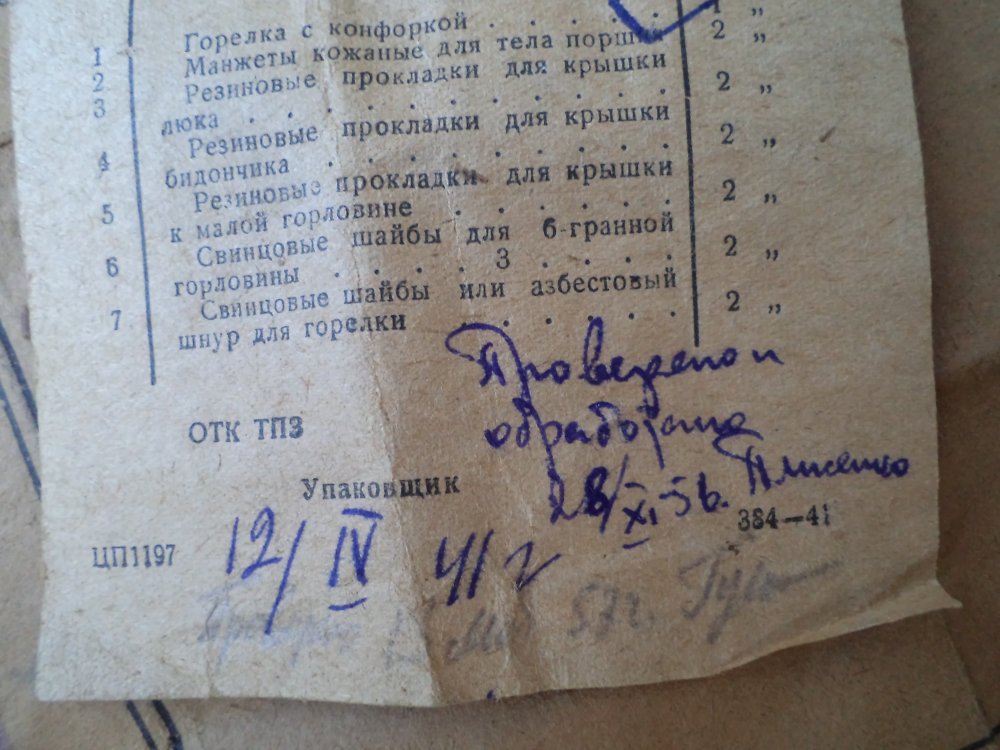 1 Горелка с конфоркой . . . . . 1 „
2 Манжеты кожаные для тела поршня 2 „
3 Резиновые прокладки для крышки
люка . . . . . . . . . 2 „
4 Резиновые прокладки для крышки
бидончика . . . . . . . . 2 „
5 Резиновые прокладки для крышки
к малой горловине . . . . . 2 „
6 Свинцовые шайбы для 6-гранной
горловины . . . . 3 . . . . 2 „
7 Свинцовые шайбы или азбестовый
шнур для горелки . . . . . . 2 „
Проверено и
обработано
28/XI-56.
ОТК ТПЗ
Упаковщик
384—41
ЦП1197
12/IV 41 г
57 г.